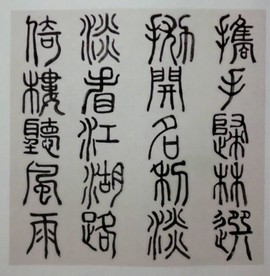 攜手歸林選
拋開名利淡
淡看江湖路
倚樓聽風雨